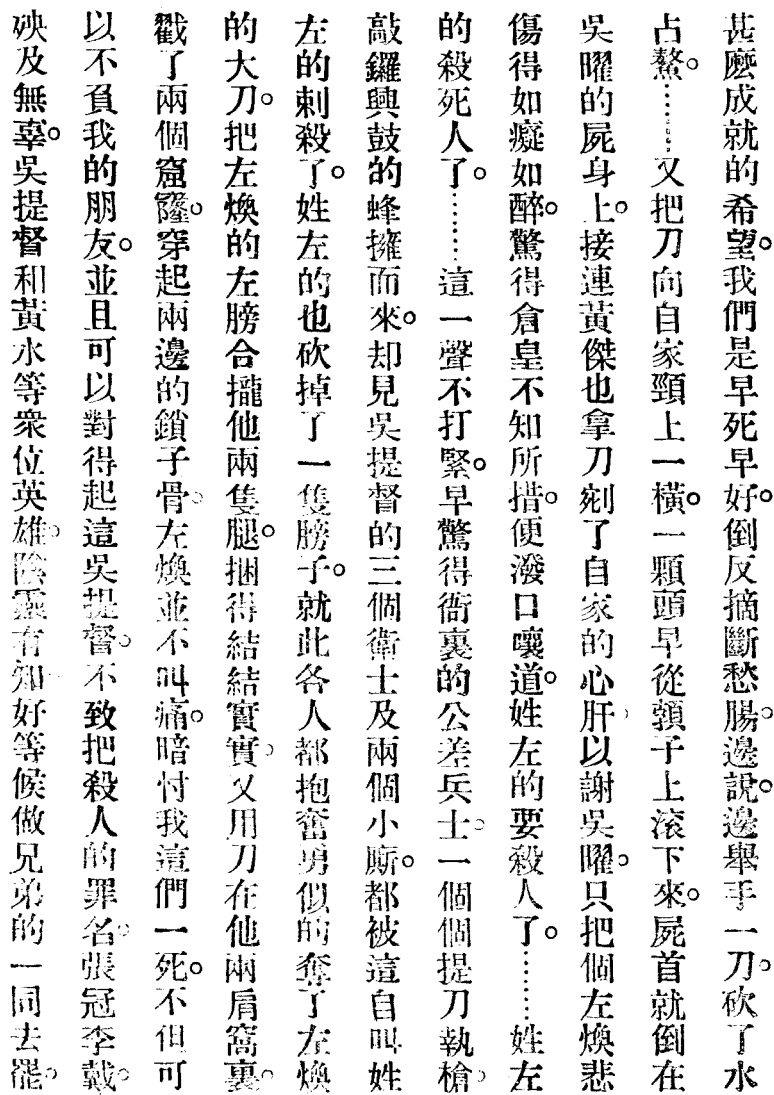 甚麽成就的希望。我們是早死早好。倒反摘斷愁腸。邊說。邊舉手一刀。砍了水
占鰲。……又把刀向自家頸上一橫。一顆頭早從頸子上滚下來。屍首就倒在
吳曜的屍身上。接連黃傑也拿刀剜了自家的心肝。以謝吳曜。只把個左煥悲
傷得如癡如醉。驚得倉皇不知所措。便潑口嚷道。姓左的要殺人了。……姓左
的殺死人了。……這一聲不打緊。早驚得衙裏的公差兵士。一個個提刀執槍。
敲鑼興鼓的蜂擁而來。却見吳提督的三個衛士及兩個小厮。都被這自叫姓
左的刺殺了。姓左的也砍掉了一隻膀子。就此各人都抱奮勇似的奪了左煥
的大刀。把左煥的左膀合攏他兩隻腿。捆得結結實實。又用刀在他兩肩窩裏。
戳了兩個窟窿。穿起兩邊的鎖子骨。左煥並不叫痛。暗忖我這們一死。不但可
以不負我的朋友。並且可以對得起這吳提督。不致把殺人的罪名。張冠李戴。
殃及無辜。吳提督和黃水等衆位英雄。陰靈有知。好等候做兄弟的一同去罷。